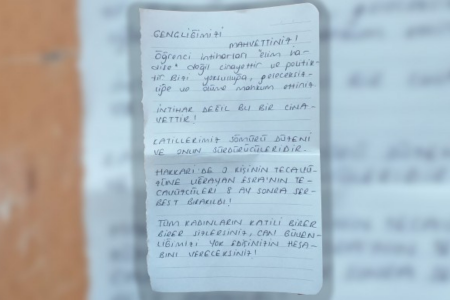 GENÇLİĞİMİZİ
MAHVETTİNİZ!
Öğrenci intiharları "elim ha-
dise" değil cinayettir ve politik-
tir bizi yoksulluğa, geleceksiz-
liğe ve ölüme mahkum ettiniz
İNTİHAR DEĞİL BU BİR CİNA-
YETTİR!
KATİLLERİMİZ SÖMÜRÜ DÜZENİ
VE ONUN SÜRDÜRÜCÜLERİDİR.
HAKKARİ DE 3 KİŞİNİN TECAVÜ-
ZÜNE UĞRAYAN ESRA'NIN TE-
CAVÜZCÜLERİ 8 AY SONRA SER-
BEST BIRAKILDI!
TÜM KADINLARIN KATİLİ BİRER
BİRER SİZLERSİNİZ, CAN GÜVEN-
LİĞİMİZİ YOK EDİŞİNİZİN HESA-
BINI VERECEKSİNİZ!